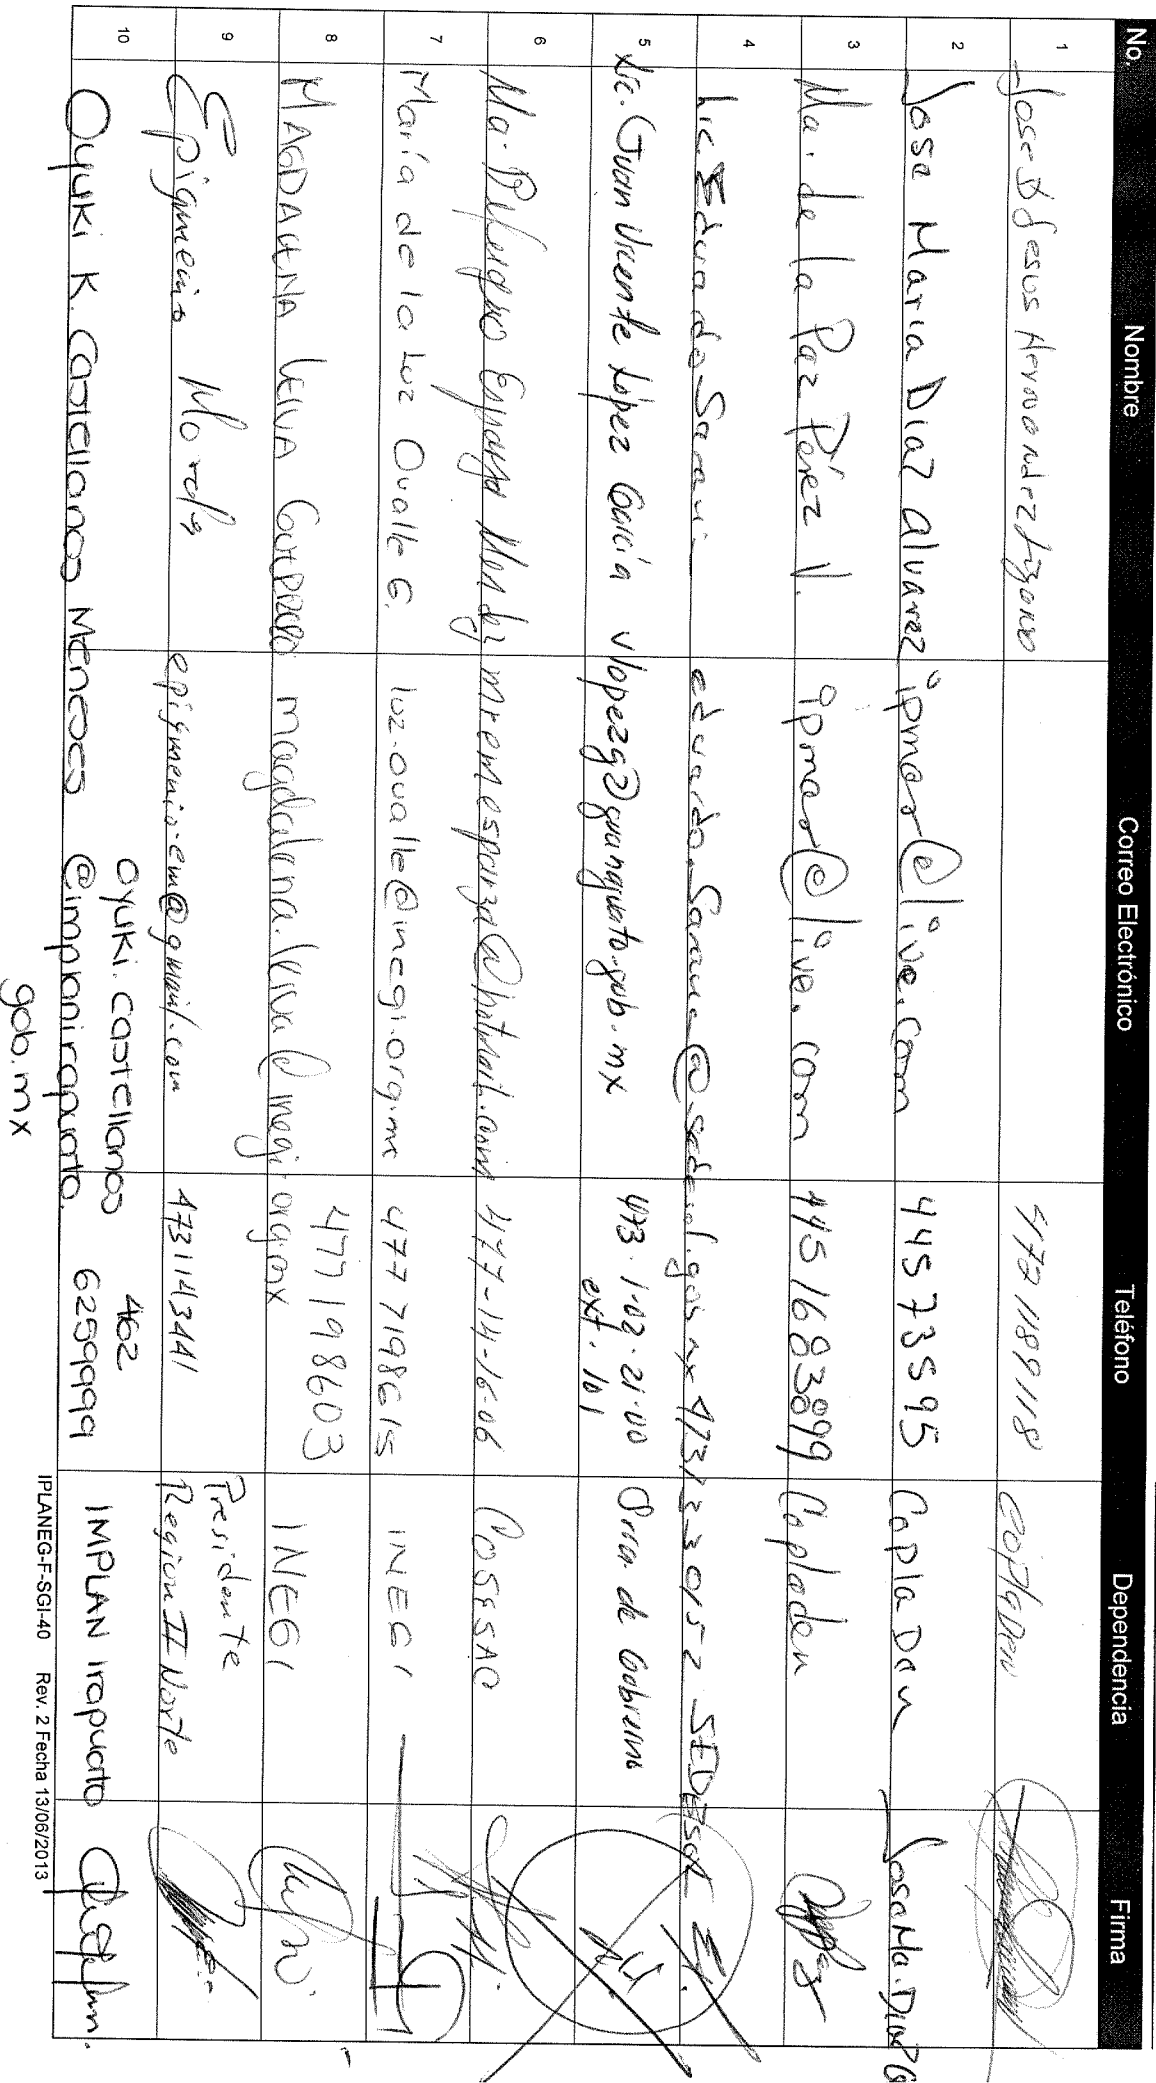 No. Nombre Correo Electrónico Teléfono Dependencia Firma
1 Jose D Jesus Hernandez 472 1189118 Copladen
2 Jose Maria Diaz alvarez ipmas@live.com 445 73595 CoplaDen Jose Ma. Diaz
3 Ma. de la Paz Pérez V. ipmas@live.com 445 1683899 Copladen
4 Lic Eduardo Saravi 4731330152 SEDESOL
5 Lic. Juan Vicente López García vlopezg@guanajuato.gob.mx 473.1.02.21.00 Sria de Gobierno
ext. 101
6 Ma. Refugio Esparza mremesparza@hotmail.com 477-14-16-06
7 María de la Luz Ovalle G. luz.ovalle@inegi.org.mx 477 7198615 INEGI
8 MAGDALENA LEIVA magdalena.leiva@inegi.org.mx 477 198603 INEGI
9 Epigmenio epigmenio.em@gmail.com 4731143441 Presidente
Region II Norte
10 Oyuki K. Castellanos Meneses oyuki.castellanos 462
@implanirapuato. 6259999 IMPLAN Irapuato
gob.mx
IPLANEG-F-SGI-40 Rev. 2 Fecha 13/06/2013